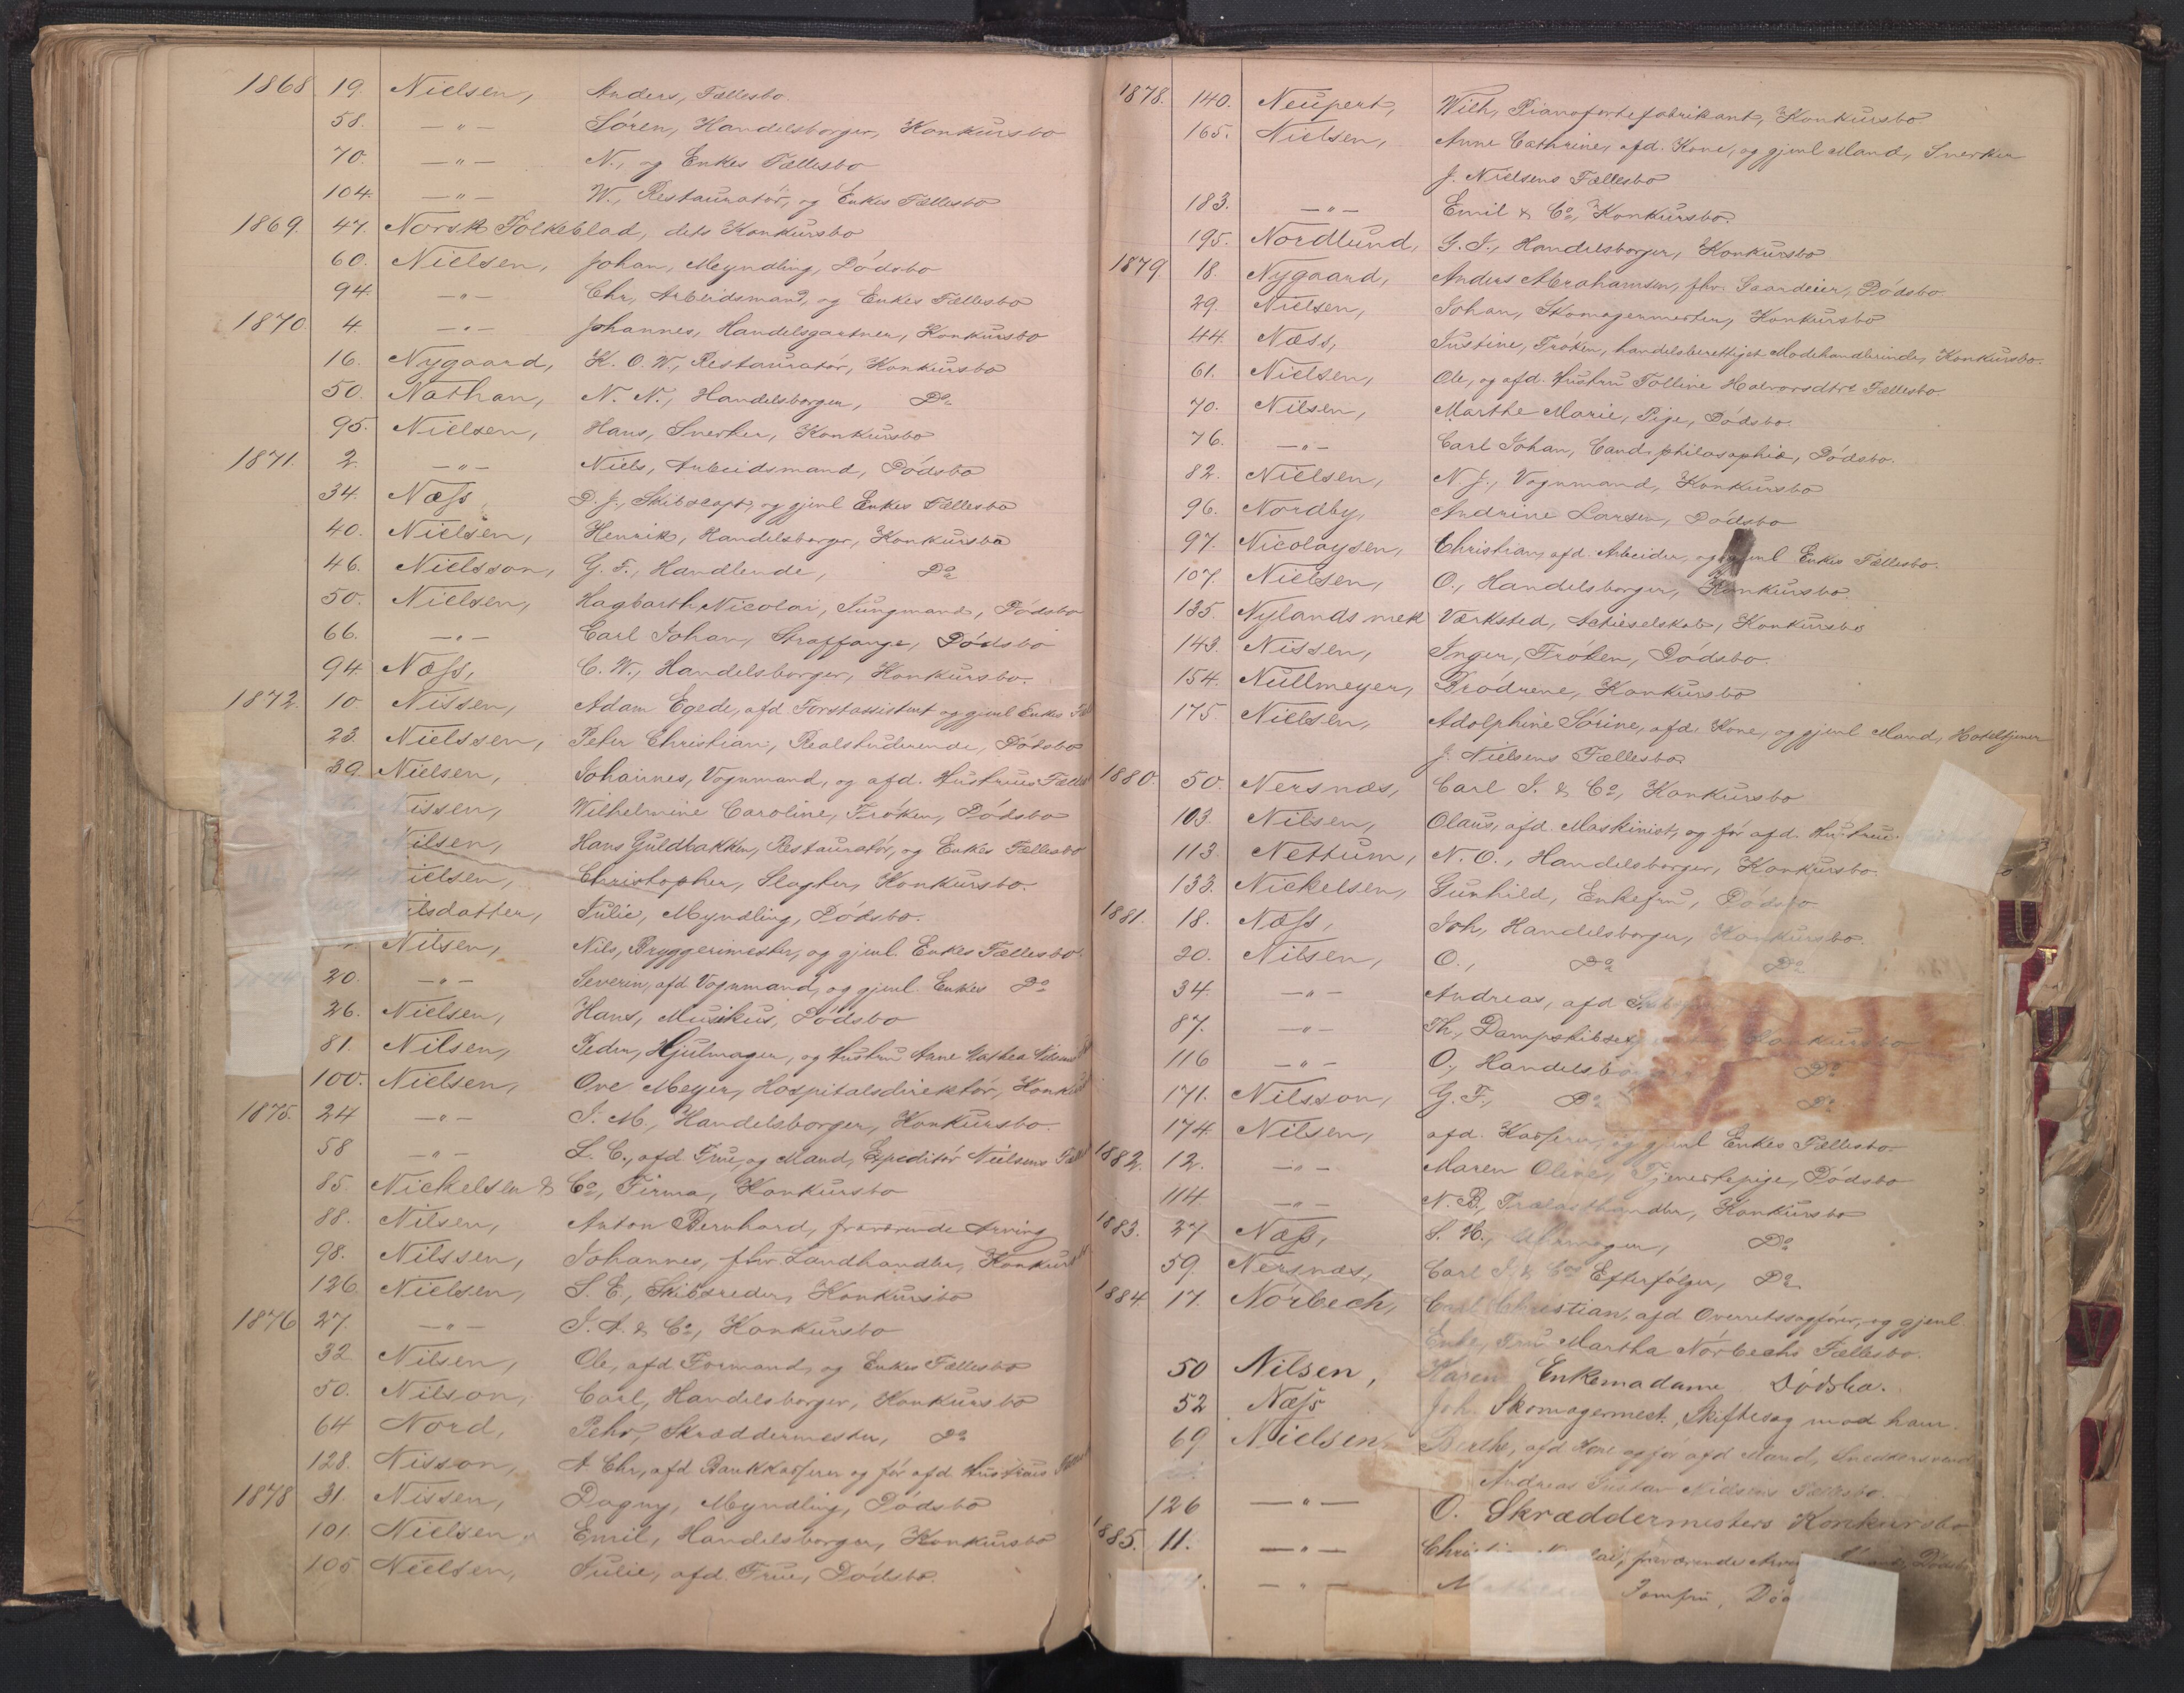 1868 19. Nielsen, Anders, Fællesbo.
58. —"— Søren, Handelsborger, Konkursbo
70. —"— N., og Enkes Fællesbo
104. —"— W., Restauratør, og Enkes Fællesbo
1869. 47. Norsk Folkeblad, dets Konkursbo
60. Nielsen, Johan, Myndling, Dødsbo
94. —"— Chr., Arbeidsmand, og Enkes Fællesbo
1870. 4. —"— Johannes, Handelsgartner, Konkursbo
16. Nygaard, K. O. W., Restauratør, Konkursbo
50. Nathan, N. N., Handelsborger, Do
95. Nielsen, Hans, Snerker, Konkursbo
1871. 2. —"— Niels, Arbeidsmand, Dødsbo
34. Næss, D. J., Skibscapt., og gjenl Enkes Fællesbo
40. Nielsen, Henrik, Handelsborger, Konkursbo
46. Nielsson, G. F., Handlende, Do
50. Nielsen, Hagbarth Nicolai, Jungmand, Dødsbo
66. —"— Carl Johan, Straffange, Dødsbo
94. Næss, C. W., Handelsborger, Konkursbo.
1872. 10 Nissen, Adam Egede, afd Forstassistent og gjenl Enkes
23. Nielssen, Peter Christian, Realstuderende, Dødsbo
39 Nielsen, Johannes, Vognmand, og afd. Hustrues
Nissen, Wilhelmine Caroline, Frøken, Dødsbo
Nilsen, Hans Guldbakken, Restauratør, og Enkes Fællesbo
Nielsen, Christopher, Slagter, Konkursbo.
Nilsdatter, Julie, Myndling, Dødsbo.
Nilsen, Nils, Bryggerimester, og gjenl. Enkes Fællesbo
20. —"— Severin, afd Vognmand, og gjenl. Enkes Do
26. Nielsen, Hans, Musikus, Dødsbo
81. Nilsen, Peder, Hjulmager, og Hustru Anne Mathea
100. Nielsen, Ove Meyer, Hospitalsdirektør,
1875. 24 —"— J. M., Handelsborger, Konkursbo.
58 —"— L. C., afd Frue, og Mand, Expeditør Nielsens
85. Nickelsen & Co, Firma, Konkursbo
88. Nilsen, Anton Bernhard, fraværende Arving
98. Nilssen, Johannes, fhv Landhandler,
126 Nielsen, S. E., Skibsreder, Konkursbo
1876 27. —"— J. A. & Co, Konkursbo
32 Nilsen, Ole, afd. Formand, og Enkes Fællesbo
50. Nilson, Carl, Handelsborger, Konkursbo
64 Nord, Pehr, Skræddermester, Do
128. Nisson, A Chr., afd Bankkasserer og før afd. Hustrues
1878 31. Nissen, Dagny, Myndling, Dødsbo
101. Nielsen, Emil, Handelsborger, Konkursbo
105 Nielsen, Julie, afd. Frue, Dødsbo.
1878. 140. Neupert, Wilh, Pianofortefabrikant, Konkursbo.
165. Nielsen, Anne Cathrine, afd. Kone, og gjenl Mand, Snerker
J. Nielsens Fællesbo
183. —"— Emil & Co, Konkursbo.
195. Nordlund, G. J., Handelsborger, Konkursbo
1879 18. Nygaard, Anders Abrahamsen, fhv. Gaardeier, Dødsbo
29. Nielsen, Johan, Skomagermester, Konkursbo
44. Næss, Justine, Frøken, handelsberettiget Modehandlerinde, Konkursbo.
61. Nielsen, Ole, og afd. Hustru Tolline Halvorsdtrs Fællesbo.
70. Nilsen, Marthe Marie, Pige, Dødsbo.
76. —"— Carl Johan, Cand. philosophiæ, Dødsbo.
82. Nielsen, N. J., Vognmand, Konkursbo
96. Nordby, Andrine Larsen, Dødsbo
97. Nicolaysen, Christian, afd. Arbeider, og gjenl Enkes Fællesbo.
107. Nielsen, O., Handelsborger, Konkursbo.
135. Nylands mek Værksted, Actieselskab, Konkursbo
143. Nissen, Inger, Frøken, Dødsbo.
154. Nüllmeyer, Brødrene, Konkursbo
175 Nielsen, Adolphine Sørine, afd. Kone, og gjenl Mand, Hotelltjener
J. Nielsens Fællesbo.
1880. 50. Nersnæs, Carl J. & Co, Konkursbo
103. Nilsen, Olaus, afd. Maskinist, og før afd. Hustrues
113. Nettum, N. O., Handelsborger, Konkursbo.
133. Nickelsen, Gunhild, Enkefru, Dødsbo
1881. 18. Næss, Joh, Handelsborger, Konkursbo.
20. Nilsen, O., Do Do
34. —"— Andreas, afd
87. —"— Th., Konkursbo
116 —"— O., Handelsborger Do
171. Nilsson, G. F., Do Do
174. Nilsen, afd. Kasserer, og gjenl Enkes Fællesbo.
1882. 12. —"— Maren Oline, Tjenestepige, Dødsbo
114. —"— N. B., Trælasthandler, Konkursbo
1883. 27 Næss, S. H., Do
59. Nersnæs, Carl J. & Co's Efterfølger, Do
1884. 17. Nørbech, Carl Christian, afd Overretssagfører, og gjenl.
Enke, Fru Martha Nørbechs Fællesbo.
50 Nilsen, Karen Enkemadame Dødsbo.
52 Næss Joh. Skomagermest., Skiftesag mod ham.
69 Nielsen Berthe, afd Kone og før afd Mand, Snedkersvend
Andreas Gustav Nielsens Fællesbo.
126 —"— O. Skræddermesters Konkursbo
1885. 11. —"— fraværende Dødsbo
—"— Jomfru,